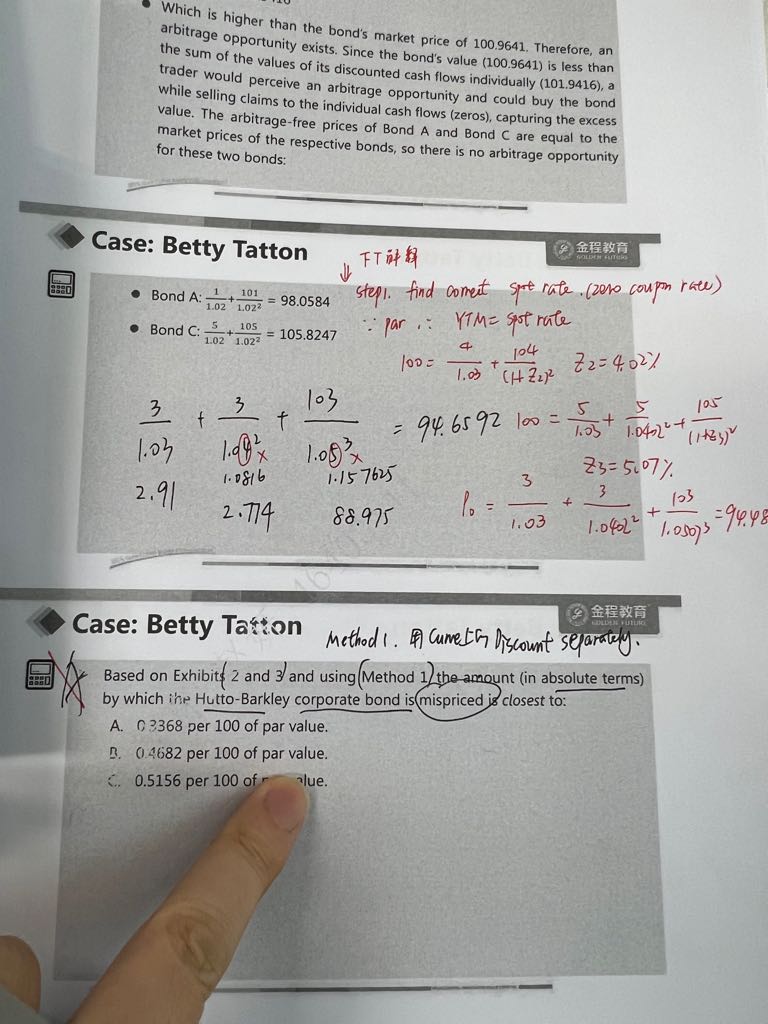 • Which is higher than the bond's market price of 100.9641. Therefore, an
arbitrage opportunity exists. Since the bond's value (100.9641) is less than
the sum of the values of its discounted cash flows individually (101.9416), a
trader would perceive an arbitrage opportunity and could buy the bond
while selling claims to the individual cash flows (zeros), capturing the excess
value. The arbitrage-free prices of Bond A and Bond C are equal to the
market prices of the respective bonds, so there is no arbitrage opportunity
for these two bonds:
Case: Betty Tatton
金程教育
GOLDEN FUTURE
↓
• Bond A: 1/1.02 + 101/1.02² = 98.0584
• Bond C: 5/1.02 + 105/1.02² = 105.8247
step1. find correct spot rate. (zero coupon rate)
∵ par ∴ YTM = spot rate
100 = 4/1.03 + 104/(1+Z2)² Z2 = 4.02%
3/1.03 + 3/1.04² + 103/1.05³ = 94.6592
x x
1.0816 1.157625
2.91 2.774 88.975
100 = 5/1.03 + 5/1.0402² + 105/(1+Z3)³
Z3 = 5.07%
P0 = 3/1.03 + 3/1.0402² + 103/1.0507³ = 94.48
Case: Betty Tatton
金程教育
GOLDEN FUTURE
Method 1. 用 Curve上的 Discount separately.
Based on Exhibits 2 and 3 and using Method 1, the amount (in absolute terms)
by which the Hutto-Barkley corporate bond is mispriced is closest to:
A. 0.3368 per 100 of par value.
B. 0.4682 per 100 of par value.
C. 0.5156 per 100 of value.